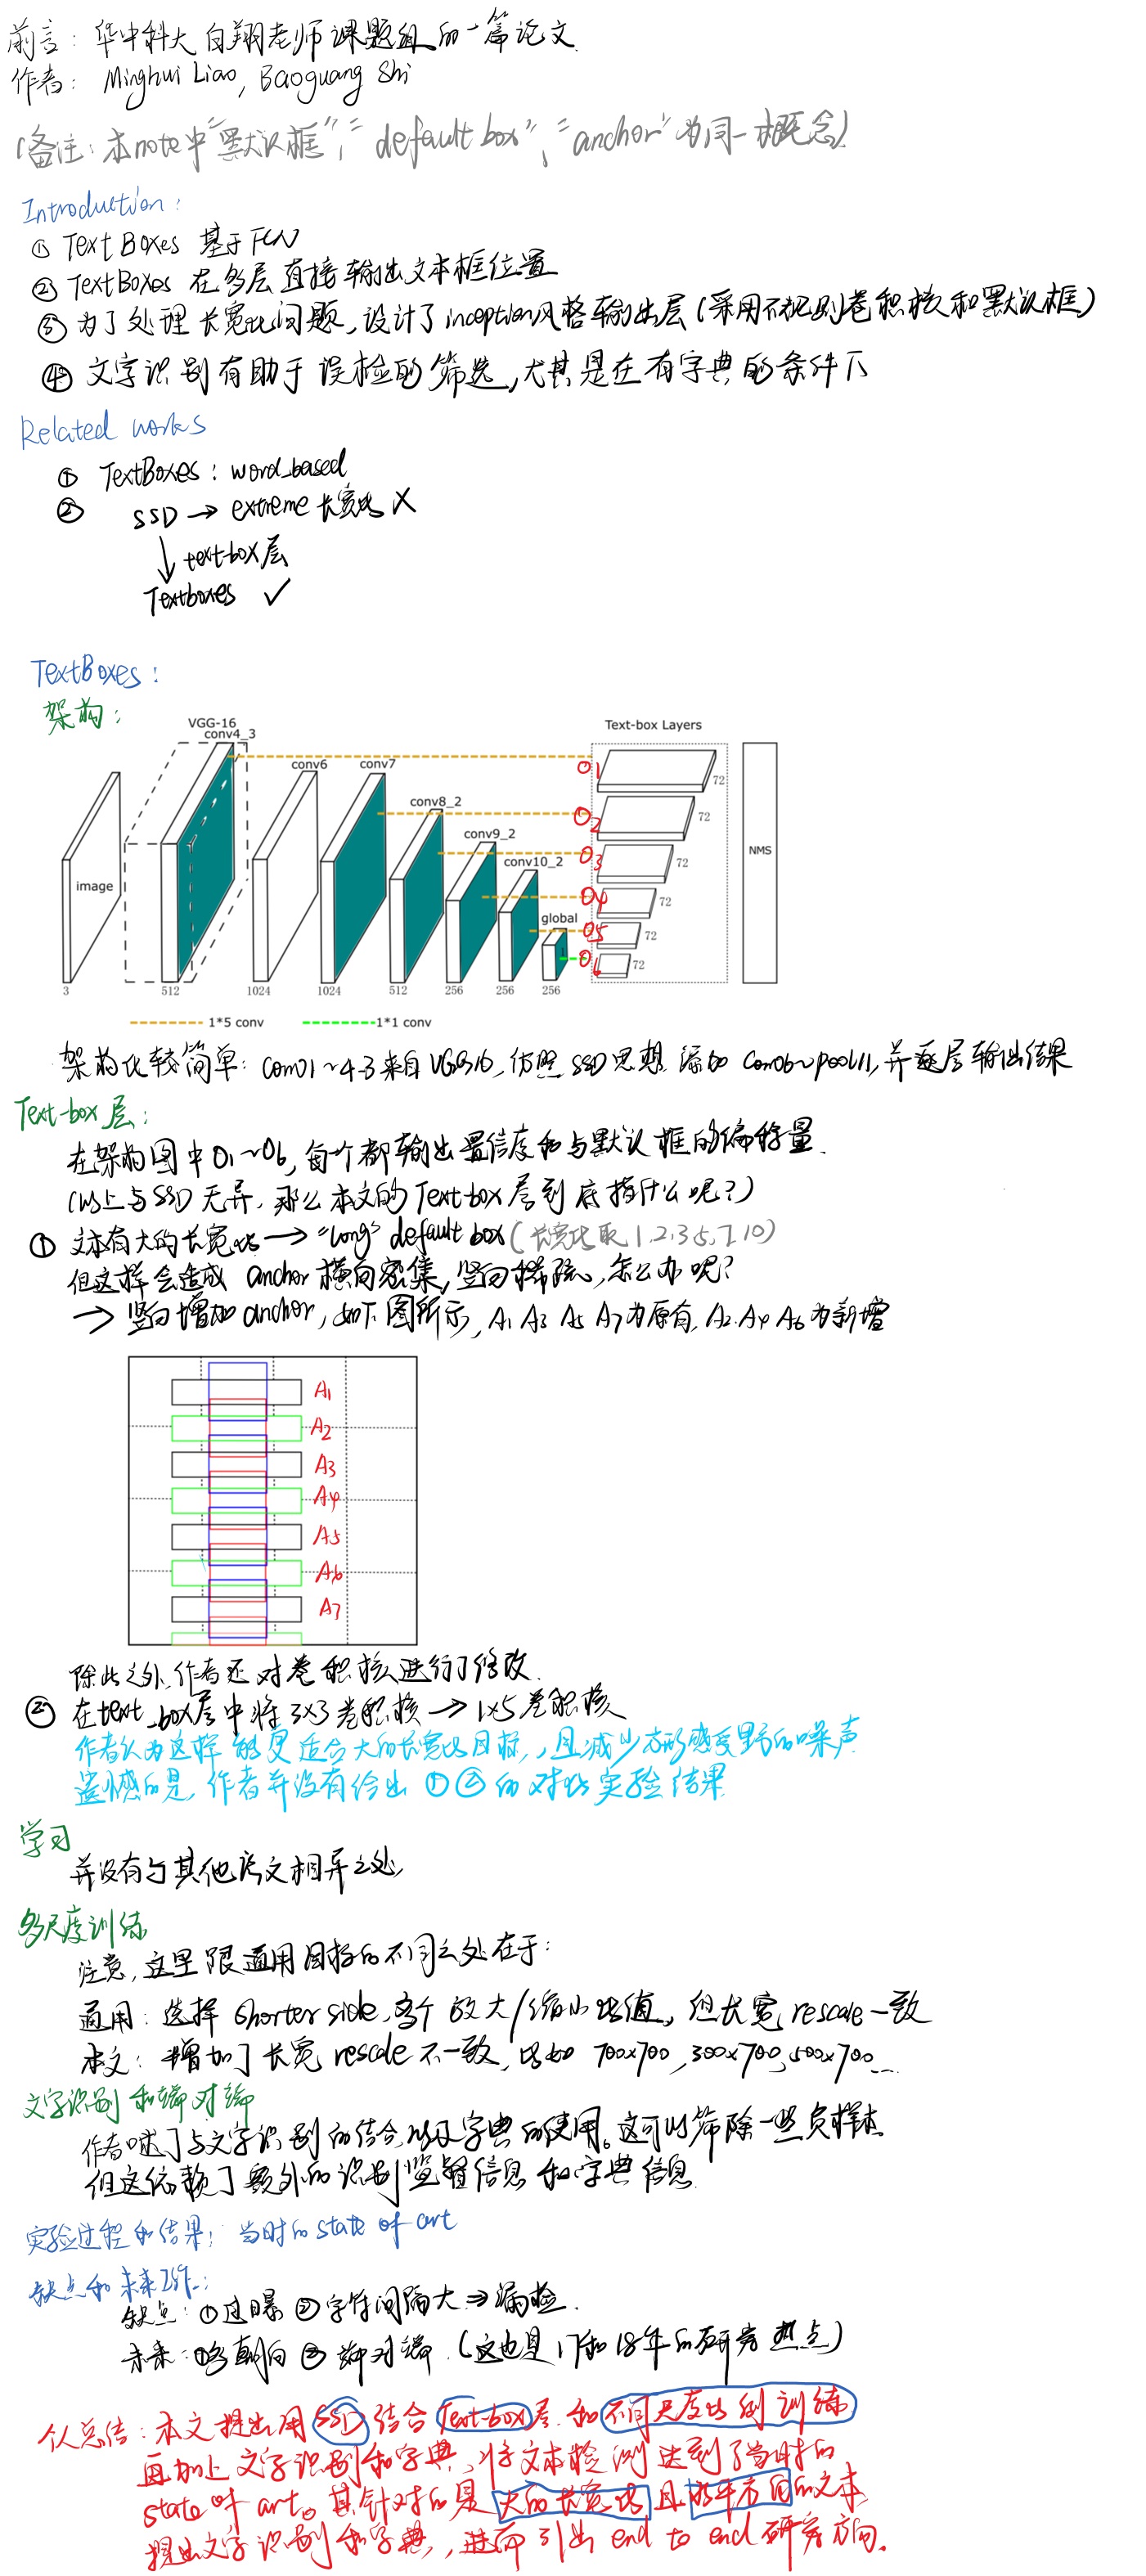 前言：华中科大 白翔老师课题组的一篇论文.
作者： Minghui Liao, Baoguang Shi
(备注：本note中"默认框"、"default box"、"anchor"为同一概念)
Introduction：
① Text Boxes 基于FCN
② TextBoxes 在多层直接输出文本框位置
③ 为了处理长宽比问题,设计了inception风格输出层(采用不规则卷积核和默认框)
④ 文字识别有助于误检的筛选,尤其是在有字典的条件下
Related works
① TextBoxes：word_based
② SSD → extreme 长宽比 X
↓ text-box 层
Textboxes ✓
TextBoxes：
架构：
VGG-16
conv4_3
conv6
conv7
conv8_2
conv9_2
conv10_2
global
image
Text-box Layers
O1
O2
O3
O4
O5
O6
72
72
72
72
72
72
NMS
3
512
1024
1024
512
256
256
256
1*5 conv
1*1 conv
架构比较简单：conv1~4-3来自VGG16, 仿照SSD思想 添加 conv6~pool11, 并逐层输出结果
Text-box 层：
在架构图中O1~O6, 每个都输出置信度和与默认框的偏移量.
(以上与SSD无异, 那么本文的Text-box层到底指什么呢?)
① 文本有大的长宽比 → "long" default box (长宽比取1,2,3,5,7,10)
但这样会造成 anchor 横向密集, 竖向稀疏, 怎么办呢?
→ 竖向增加anchor, 如下图所示, A1 A3 A5 A7为原有, A2.A4 A6为新增
A1
A2
A3
A4
A5
A6
A7
除此之外,作者还对卷积核进行了修改.
② 在text_box层中将3x3卷积核 → 1x5卷积核
作者认为这样能更适合大的长宽比目标, 且减少方形感受野的噪声
遗憾的是, 作者并没有给出①②的对比实验结果
学习
并没有与其他论文相异之处,
多尺度训练
注意, 这里跟通用目标的不同之处在于：
通用：选择 shorter side, 多个放大/缩小比值, 但长宽 rescale 一致
本文：增加了长宽 rescale 不一致, 比如 700x700, 300x700, 500x700...
文字识别和端对端
作者 了与文字识别的结合,以及字典的使用。这可以筛除一些负样本
但这依赖了额外的识别监督信息和字典信息.
实验过程和结果：当时的state of art
缺点和未来工作：
缺点：①过曝 ②字符间隔大 ⇒ 漏检.
未来：①多朝向 ② 端对端 (这也是17和18年的研究热点)
个人总结：本文提出用SSD结合Text-box层 和不同尺度比例训练
再加上文字识别和字典, 将文本检测达到了当时的
state of art。其针对的是大的长宽比且水平方向的文本
提出文字识别和字典, 进而引出 end to end 研究方向.